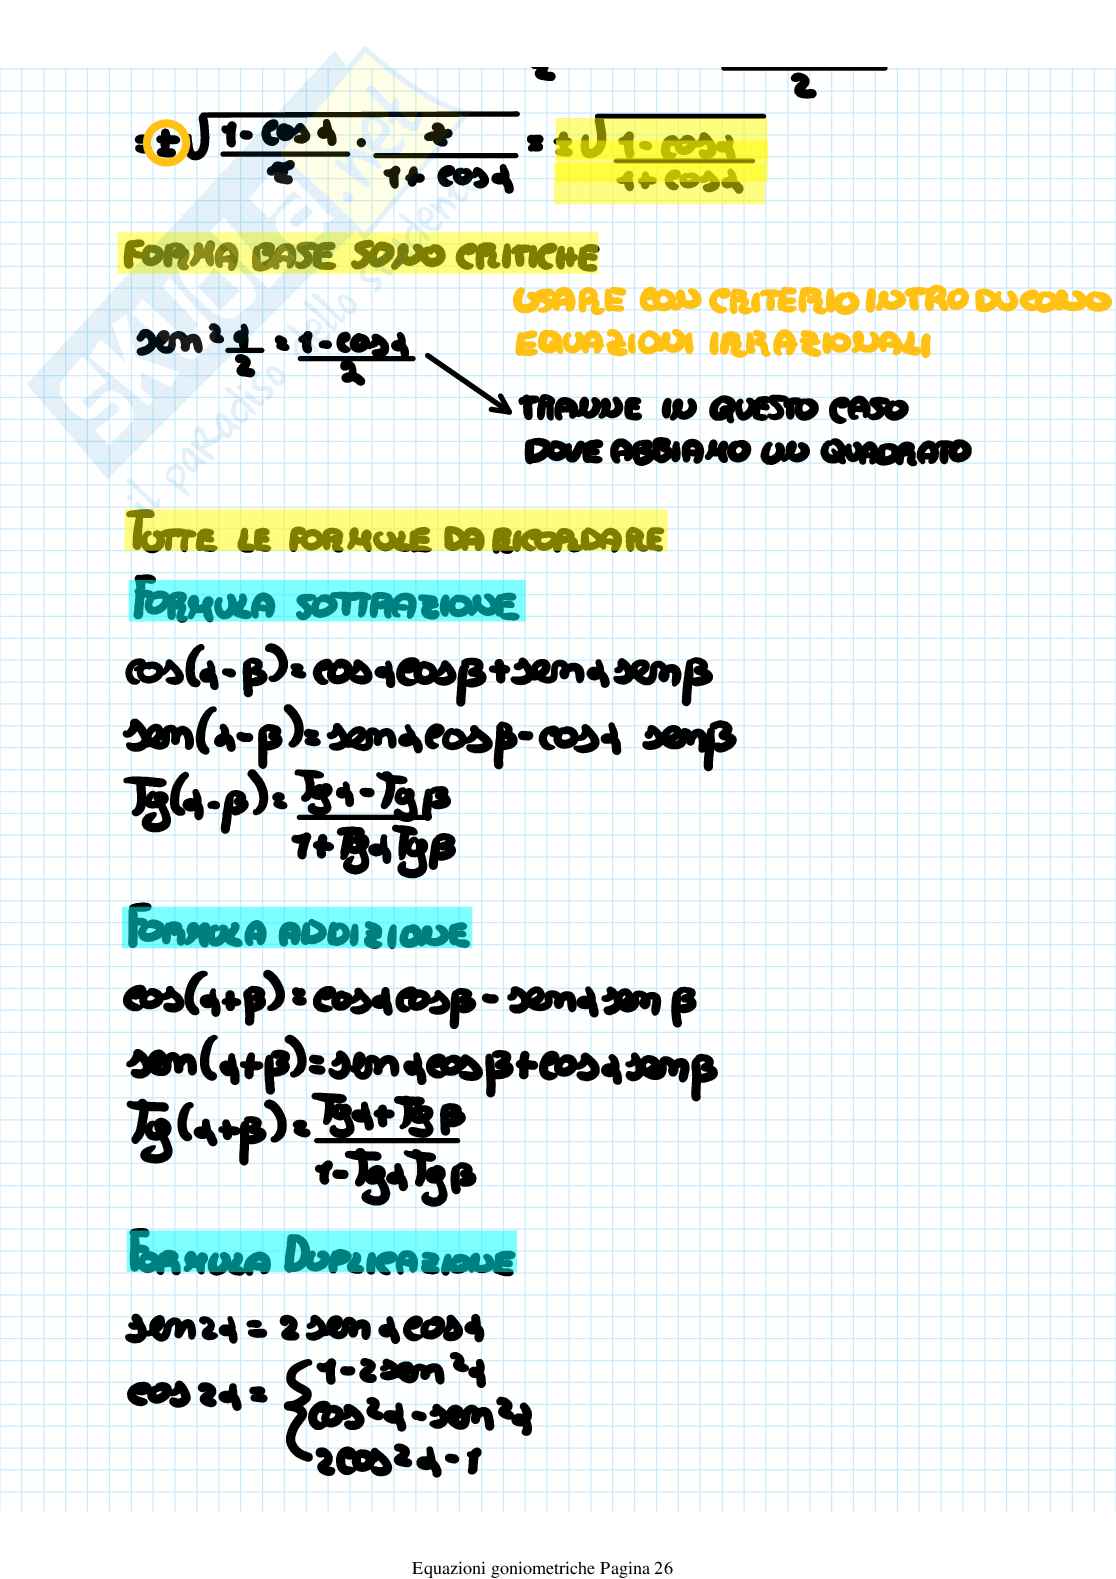 2 2
= ± √((1 - cos α)/2 · 2/(1 + cos α)) = ± √((1 - cos α)/(1 + cos α))
FORMA BASE SONO CRITICHE
USARE CON CRITERIO INTRODUCONO
EQUAZIONI IRRAZIONALI
sen² α/2 = (1 - cos α)/2
TRANNE IN QUESTO CASO
DOVE ABBIAMO UN QUADRATO
TUTTE LE FORMULE DA RICORDARE
FORMULA SOTTRAZIONE
cos(α - β) = cos α cos β + sen α sen β
sen(α - β) = sen α cos β - cos α sen β
Tg(α - β) = (Tg α - Tg β)/(1 + Tg α Tg β)
FORMULA ADDIZIONE
cos(α + β) = cos α cos β - sen α sen β
sen(α + β) = sen α cos β + cos α sen β
Tg(α + β) = (Tg α + Tg β)/(1 - Tg α Tg β)
FORMULA DUPLICAZIONE
sen 2α = 2 sen α cos α
cos 2α = { 1 - 2 sen² α
cos² α - sen² α
2 cos² α - 1
SKUOLA.net
il paradiso dello studente
Equazioni goniometriche Pagina 26